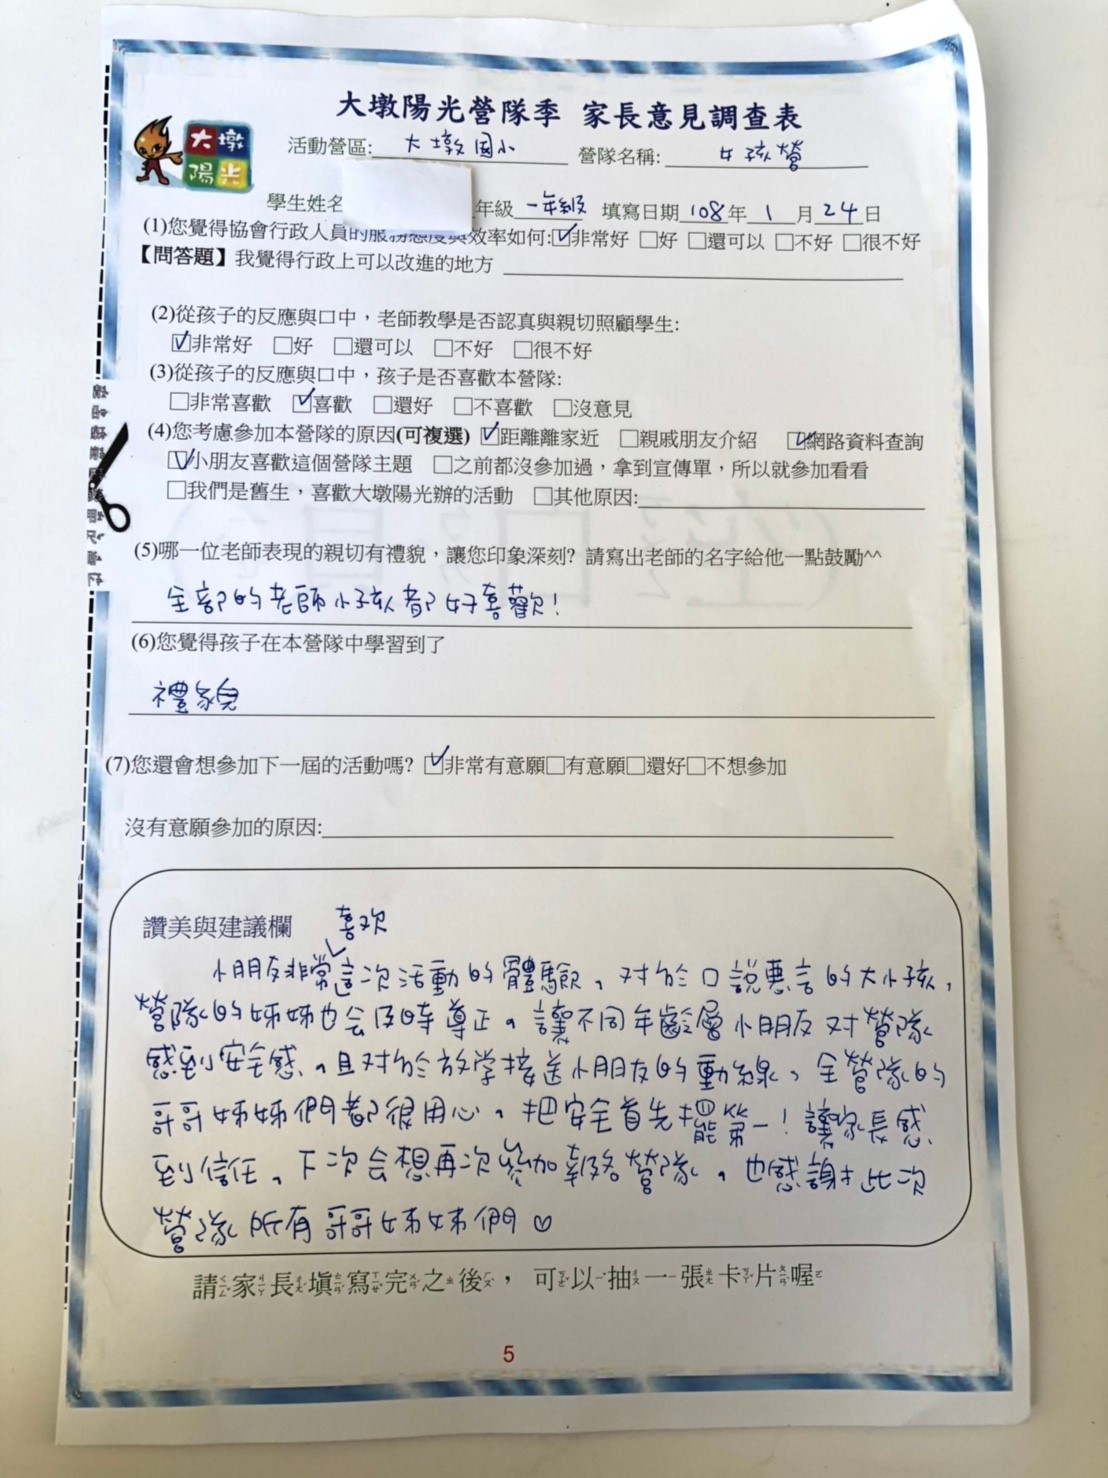 大墩陽光營隊季 家長意見調查表
大墩
陽光
活動營區: 大墩國小 營隊名稱: 女孩營
學生姓名 年級 一年級 填寫日期 108 年 1 月 24 日
(1)您覺得協會行政人員的服務態度與效率如何:☑非常好 □好 □還可以 □不好 □很不好
【問答題】我覺得行政上可以改進的地方
(2)從孩子的反應與口中，老師教學是否認真與親切照顧學生:
☑非常好 □好 □還可以 □不好 □很不好
(3)從孩子的反應與口中，孩子是否喜歡本營隊:
□非常喜歡 ☑喜歡 □還好 □不喜歡 □沒意見
(4)您考慮參加本營隊的原因(可複選) ☑距離離家近 □親戚朋友介紹 ☑網路資料查詢
☑小朋友喜歡這個營隊主題 □之前都沒參加過，拿到宣傳單，所以就參加看看
□我們是舊生，喜歡大墩陽光辦的活動 □其他原因:
(5)哪一位老師表現的親切有禮貌，讓您印象深刻? 請寫出老師的名字給他一點鼓勵^^
全部的老師小孩都好喜歡!
(6)您覺得孩子在本營隊中學習到了
禮貌
(7)您還會想參加下一屆的活動嗎? ☑非常有意願□有意願□還好□不想參加
沒有意願參加的原因:
讚美與建議欄
喜欢
小朋友非常這次活動的體驗，对於口說惡言的大小孩，
營隊的姊姊也会及時導正。讓不同年齡層小朋友对營隊
感到安全感。且对於放学接送小朋友的動線，全營隊的
哥哥姊姊們都很用心，把安全首先擺第一！讓家長感
到信任。下次会想再次參加報名營隊，也感謝此次
營隊所有哥哥姊姊們♡
請家長填寫完之後，可以抽一張卡片喔
5